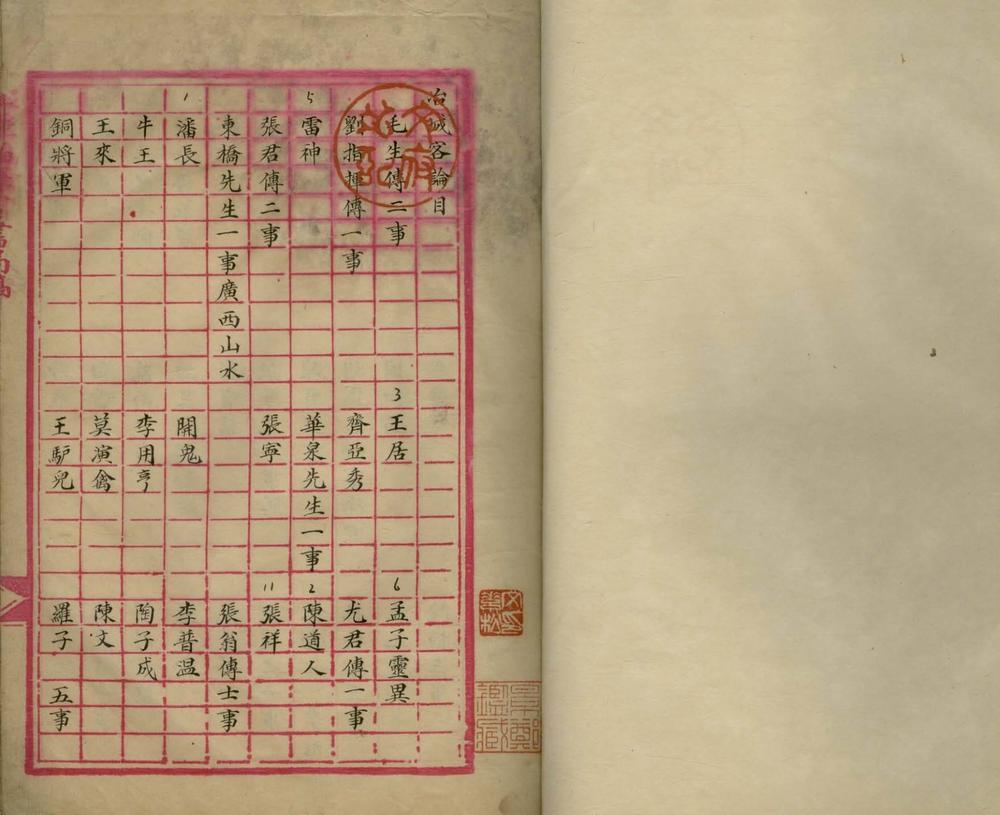 冶城客論目
毛生傳二事 3 王居 6 孟子靈異
劉指揮傳一事 齊亞秀 尤君傳一事
5 雷神 華泉先生一事 2 陳道人
張君傳二事 張寧 11 張祥
東橋先生一事廣西山水 張翁傳士事
1 潘長 開鬼 李普温
牛王 李用亨 陶子成
王來 莫演禽 陳文
銅將軍 王馿兒 羅子 五事